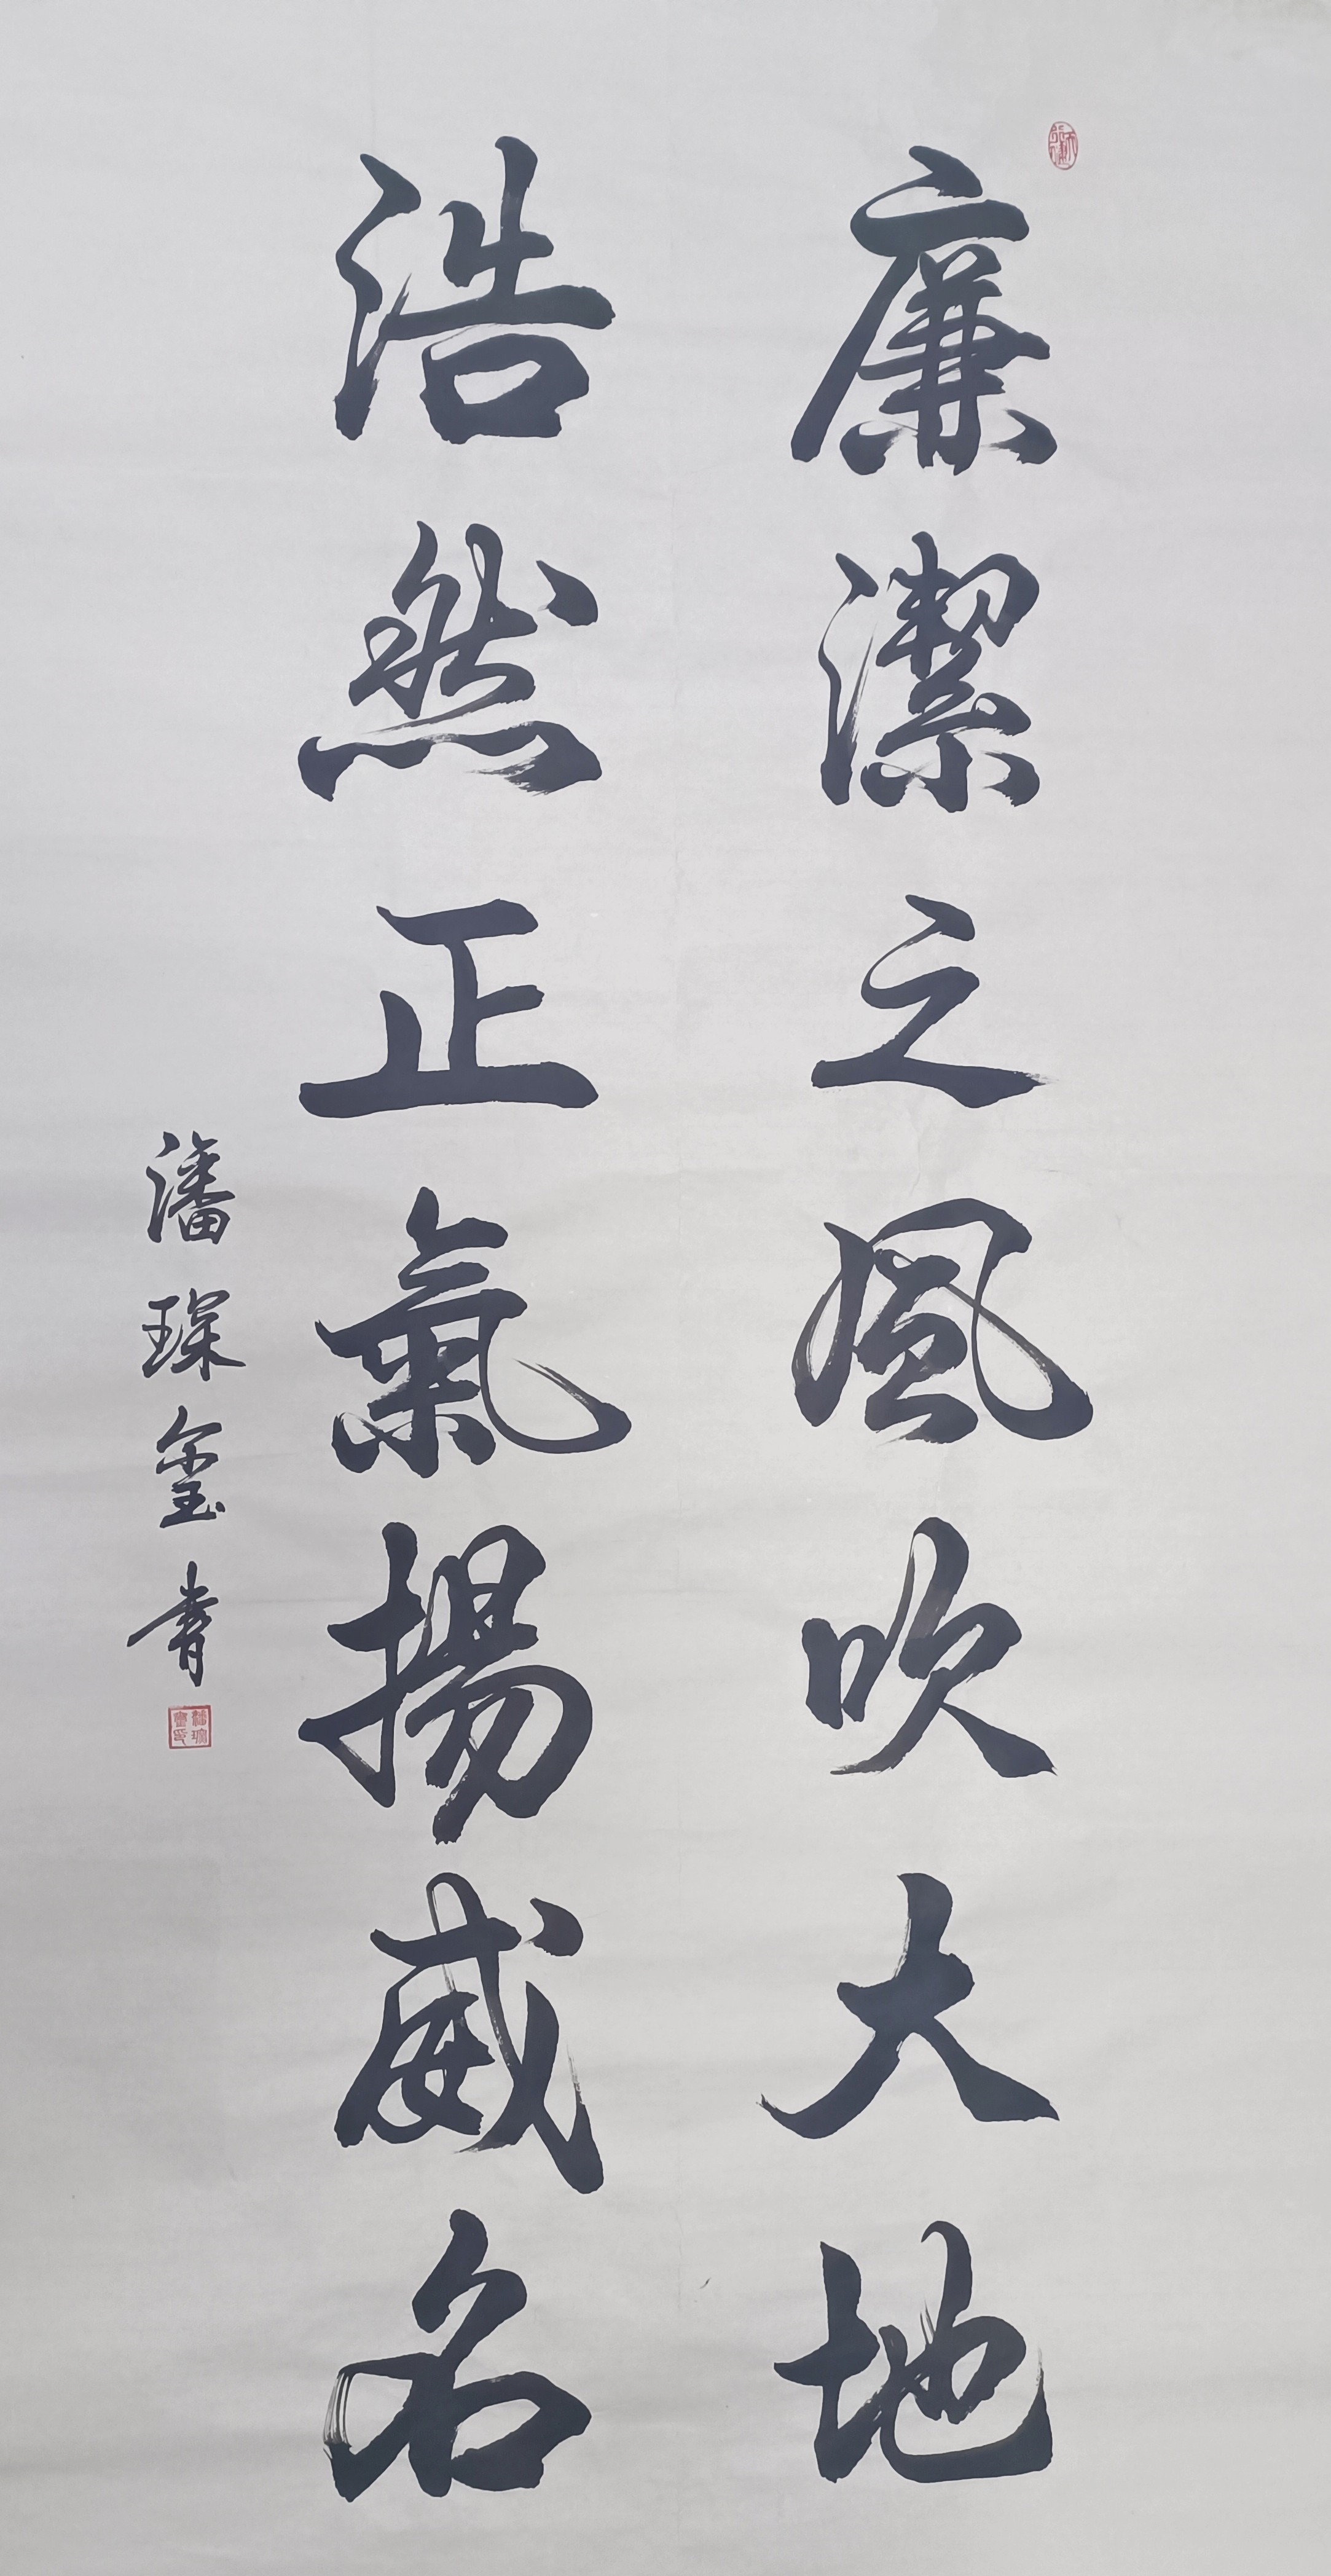 廉潔之風吹大地
浩然正氣揚威名
潘琛玺書